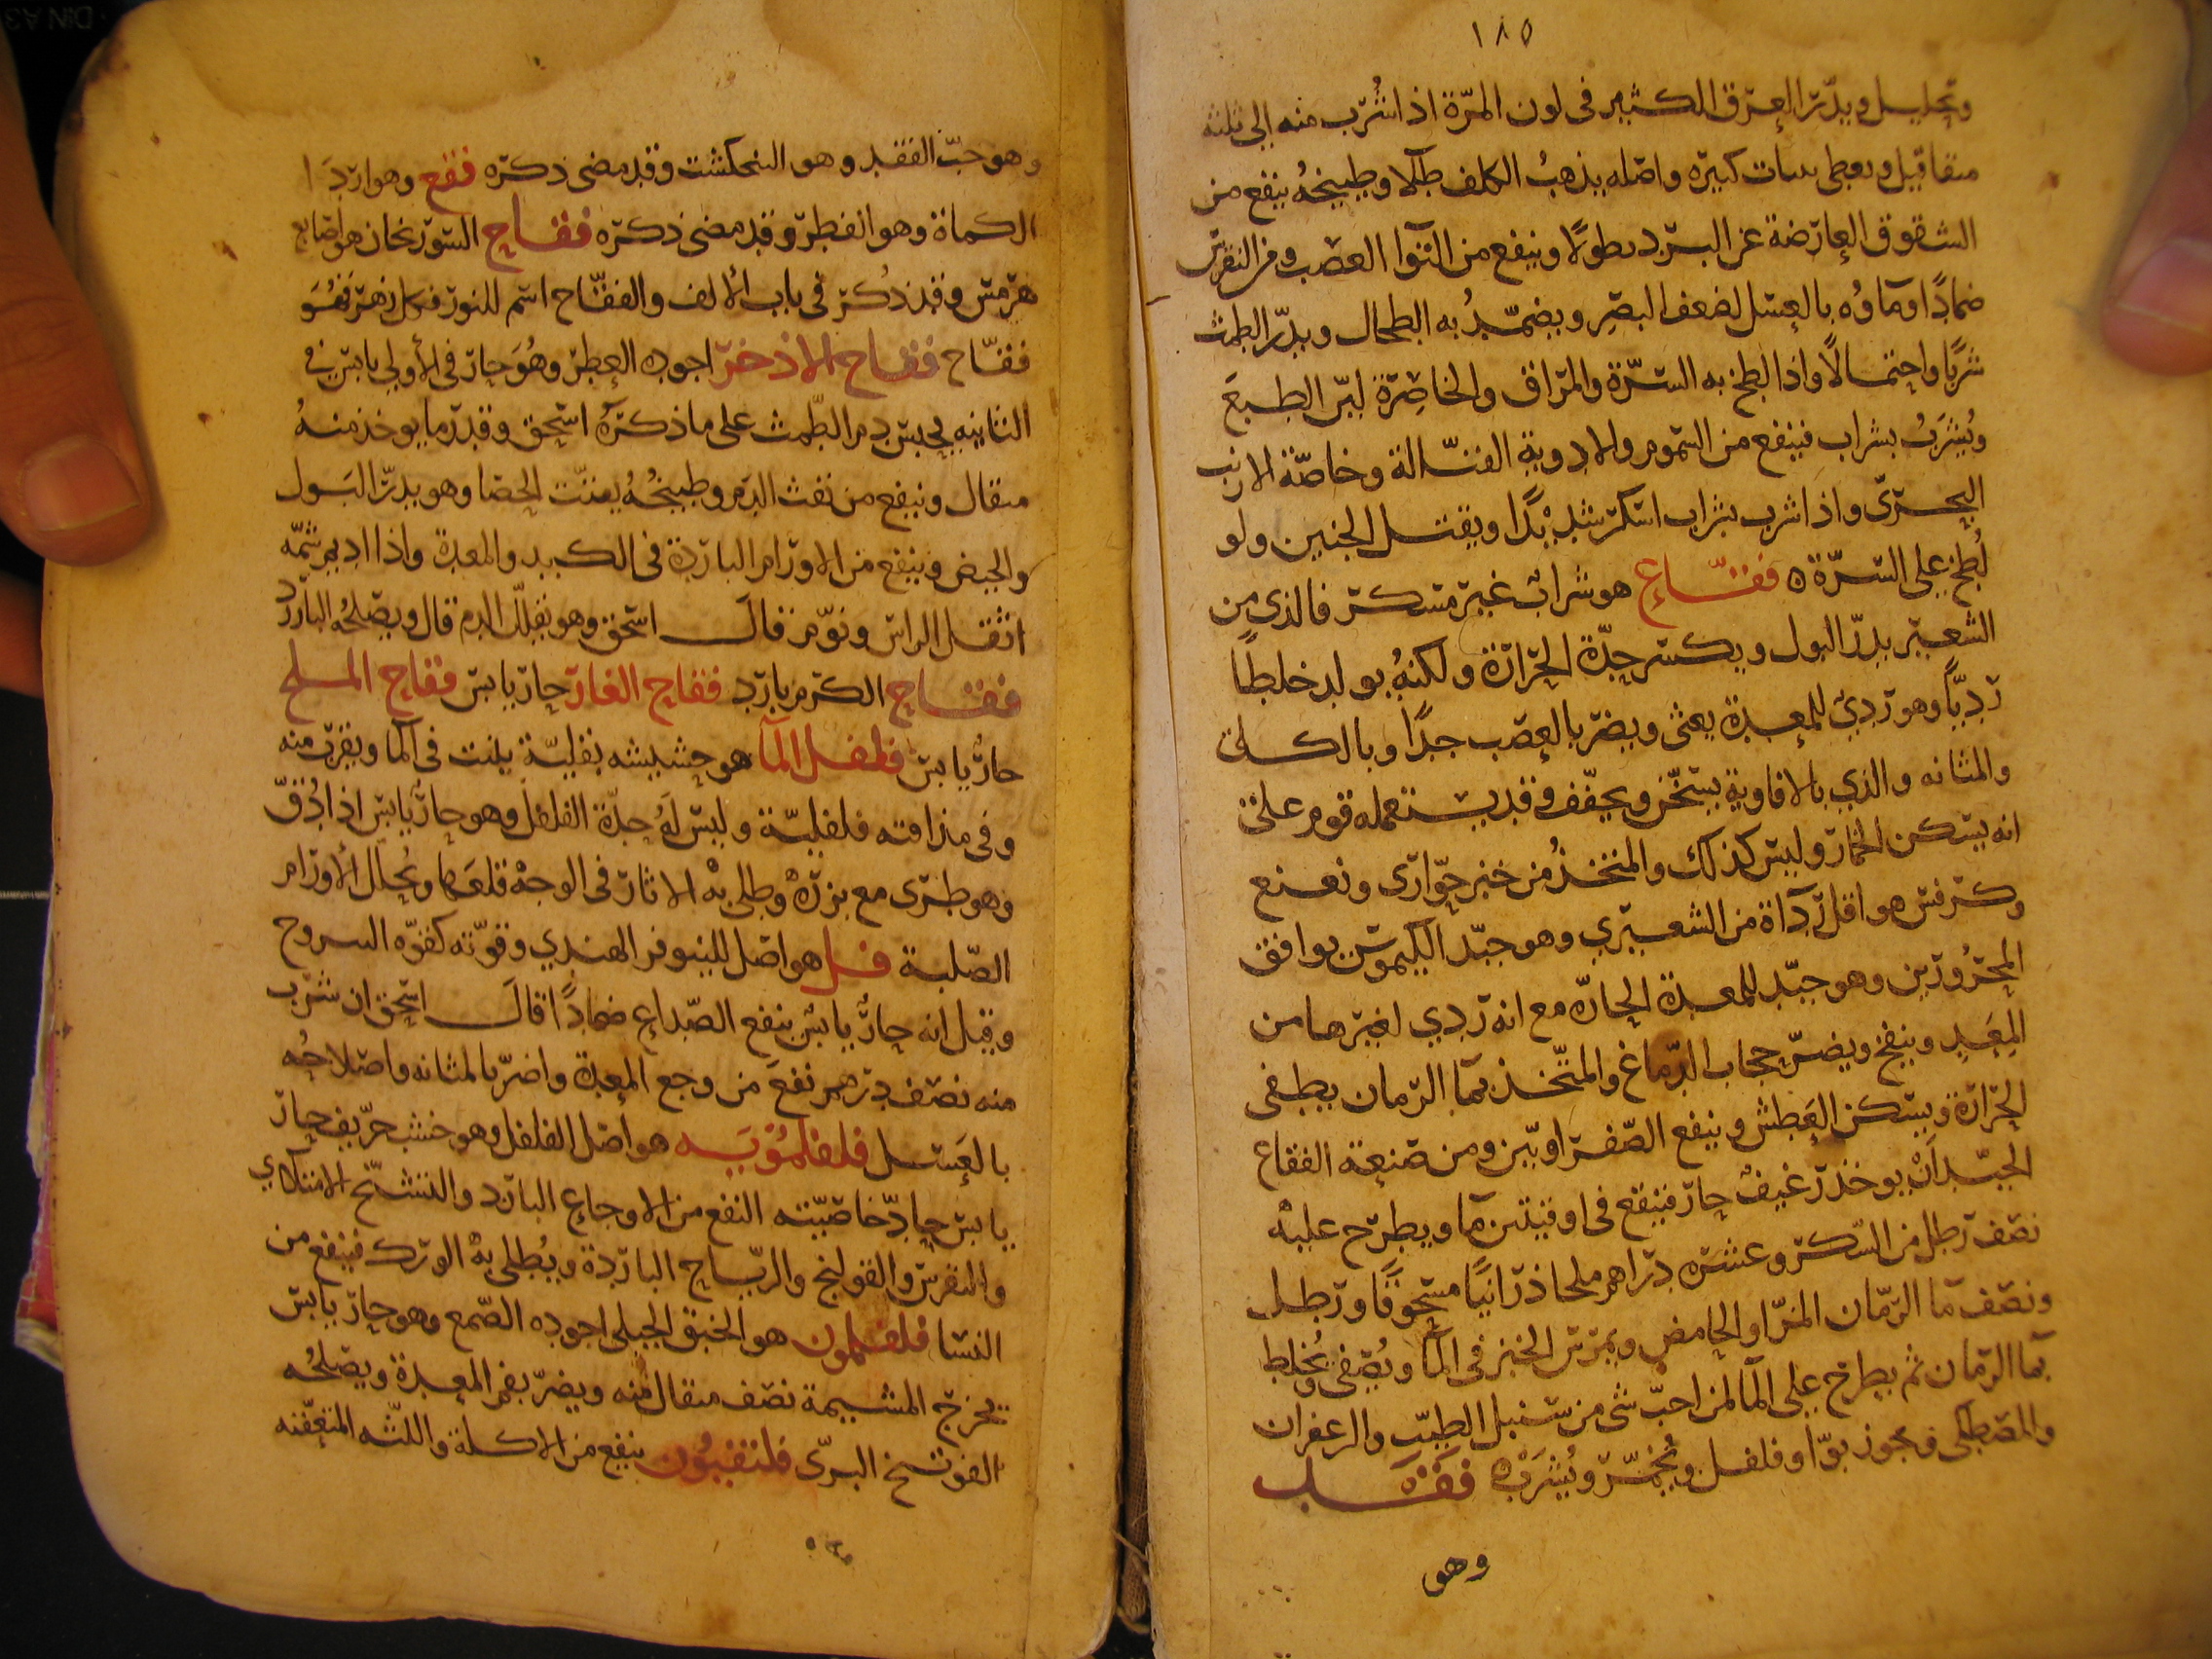 ١٨٥
وتحليل ويدرّ العرق الكثير فى لون المرّة اذا شُرب منه الى ثلثة
مثاقيل ويغطى بثياب كثيره واصله يذهبُ الكلف طلا وطبيخهُ ينفع من
الشقوق العارضة عن البرد نطولًا وينفع من التوا العصب ومن النقرس
ضمادًا وماوُه بالعسل لضعف البصر ويضمّدُ به الطحال ويدرّ الطمث
شربًا واحتمالًا واذا لطخ به السرّة والمراق والخاصِرة ليّن الطبعَ
ويُشرَبُ بشراب فينفع من السموم والادوية القتّالة وخاصّة الارنب
البحرىّ واذا شرب بشراب اسكر شديدًا ويقتل الجنين ولو
لُطخ على السرّة ه فقّاع هو شرابٌ غير مسكر فالذى من
الشعير يدرّ البول ويكسر حدّة الحرارة ولكنهُ يولد خلطًا
رديًّا وهو ردىٌ للمعدة يعثى ويضر بالعصب جدًا وبالكلى
والمثانه والذي بالافاوية يسخّن ويجفّف وقد يستعمله قوم على
انه يسكن الخمار وليس كذلك والمتخذُ من خبز حوّارى ونعنع
وكرفس هو اقل رداة من الشعيري وهو جيّد الكيموس يوافق
المحرُورين وهو جيّد للمعدة الحارّه مع انه ردي لغيرها من
المِعَدِ وينفخ ويضرّ حجاب الدّماغ والمتّخذ بما الرمان يطفى
الحرارة ويسكن العَطش وينفع الصّفراويّين ومن صنعة الفقاع
الجيّد اَنْ يوخذ رغيفٌ حار فينقع فى اوقيتين ما ويطرح عليه
نصف رطل من السّكر وعشره دراهم ملحا ذرانيًا مسحوقًا ورطل
ونصف ما الرّمان المزّ او الحامض ويمرس الخبز فى الما ويُصفى ويُخلط
بما الرمان ثم يطرح على الما لمن احبّ شى من سنبل الطيّب والزعفران
والمصطكى وجوز بوّا وفلفل ويُخمّر ويُشرَبُ فقد
وهو
وهو حبّ الفقد وهو البنجكشت وقد مضى ذكره فقع وهو اردَا
الكماة وهو الفطر وقد مضى ذكره فقاح السورنجان هو اصابع
هرمس وقد ذُكر فى باب الألف والفقّاح اسم للنور فكل زهر فهُوَ
فقّاح فقاح الاذخر اجوده العطر وهُوَ حار فى الأولى يابس في
الثانيه يحبس دم الطّمث على ما ذكرهُ اسحق وقدر ما يوخذ منهُ
مثقال وينفع من نفث الدم وطبيخُهُ يفتّت الحصا وهو يدرّ البَول
والحيض وينفع من الاورام الباردة فى الكبد والمعدة واذا اديم شمّه
اثقل الراس ونوّم قال اسحق وهو يقلّل الدم قال ويصلحُه البارَد
فقاح الكرم بارد فقاح الغار حار يابس فقاح الملح
حارٌّ يابس فلفل الما هو حشيشه بقليّة ينبت فى الما ويقرب منه
وفى مذاقته فلفليّة وليس لَهُ حدّة الفلفل وهو حارٌّ يابس اذا دُقّ
وهو طرى مع بزره وطلى به الاثار فى الوجه قلعها ويُحلّل الأورام
الصّلبة فل هو اصل للينوفر الهندي وقوّته كقوّه اليبروح
وقيل انه حارٌّ يابس ينفع الصّداع ضمادًا قال اسحق ان شرب
منه نصف درهم نفع من وجع المعدة واضرّ بالمثانه واصلاحُه
بالعَسل فلفلمُويَه هو اصل الفلفل وهو خشب حرّيف حار
يابس حادّ خاصيّته النفع من الاوجاع البارد والتشنّج الامتلاي
والنقرس والقولنج والريّاح الباردة ويُطلى به الورك فينفع من
النسا فلفلمون هو الحبق الجبلى اجوده الصّمع وهو حار يابس
يخرج المشيمة نصف مثقال منه ويضرّ بفم المعدة ويصلحُه
الفوتنج البرّى فلنفيون ينفع من الاكلة واللثّه المتعفّنه